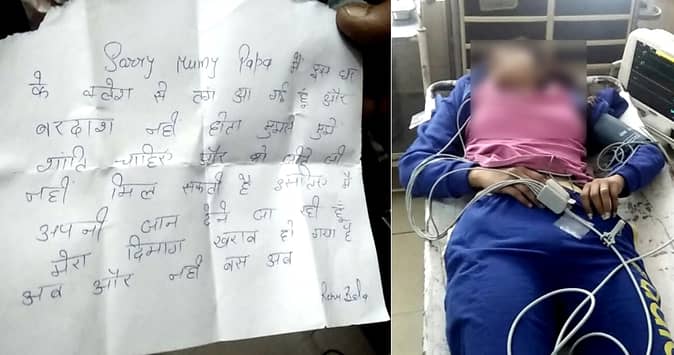 Sarry Mumy Papa मैं इस घर
के कलेश से तंग आ गई हूं और
बरदाश नहीं होता मुझसे मुझे
शांति चाहिए और वो जीते जी
नहीं मिल सकती है इसलिए मैं
अपनी जान देने जा रही हूं
मेरा दिमाग खराब हो गया है
अब और नहीं बस अब